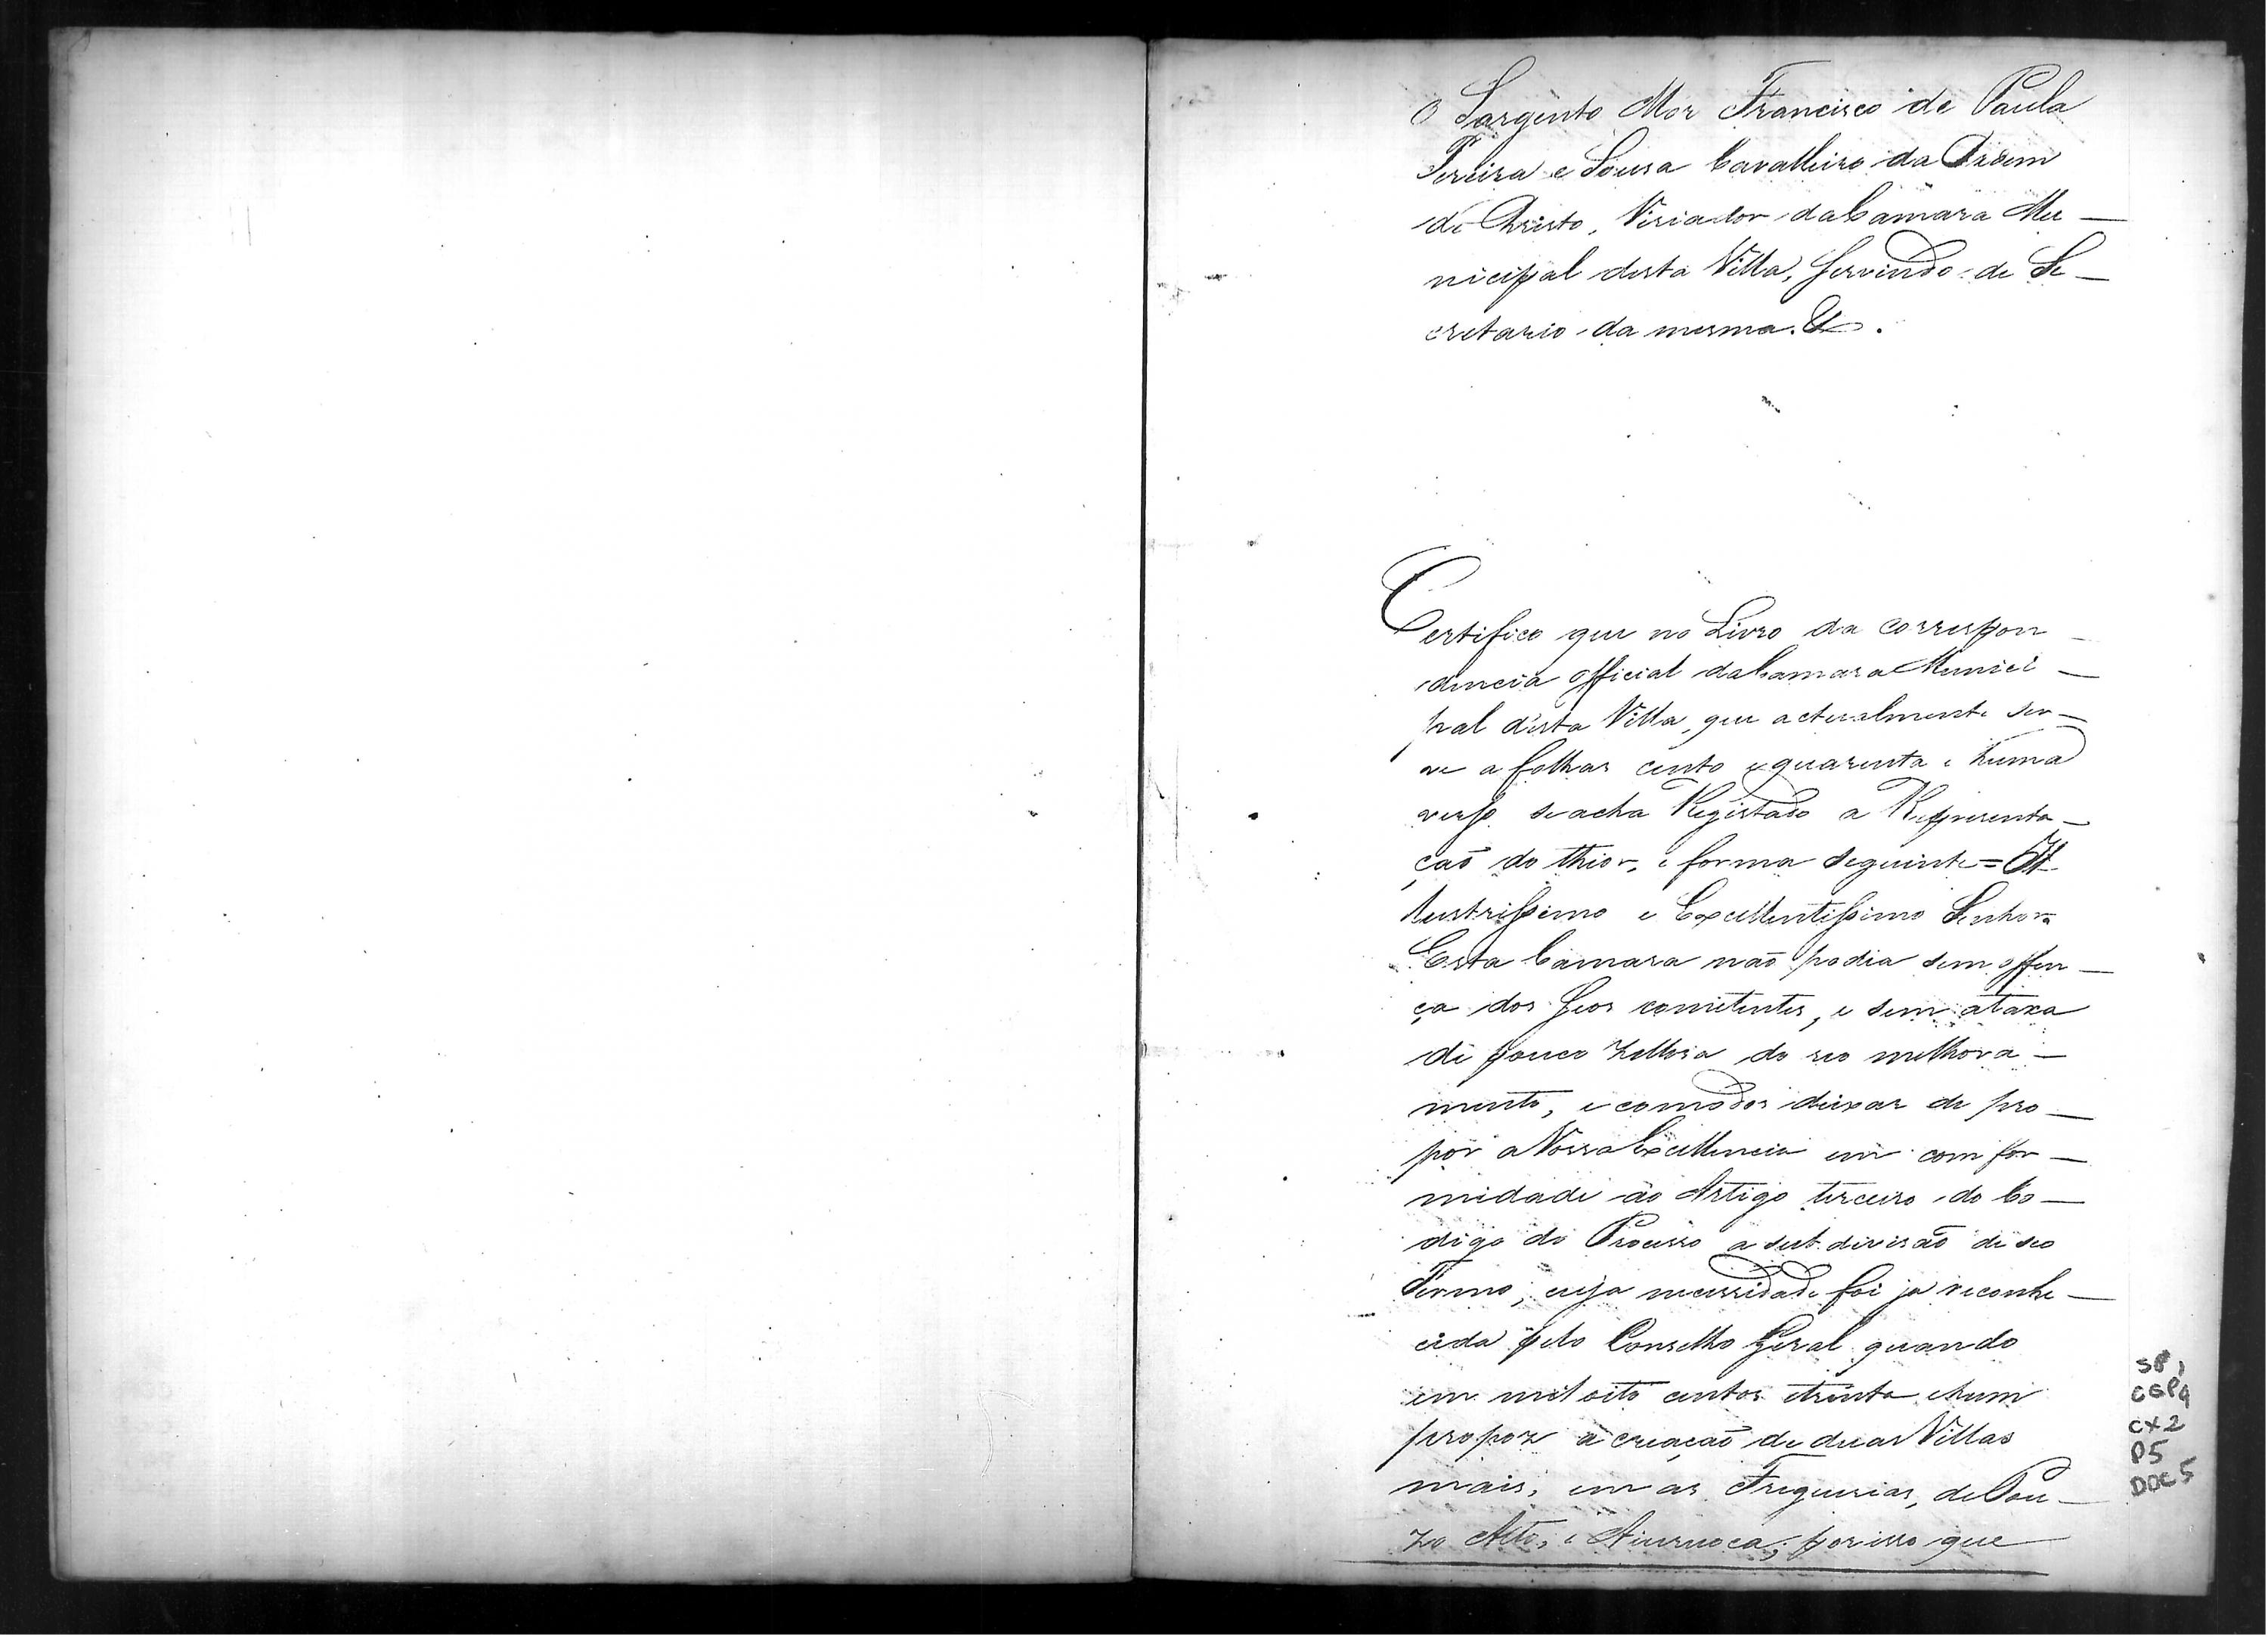 O Sargento Mor Francisco de Paula
Pereira e Sousa Cavalleiro da Ordem
de Christo, Viriador da Camara Mu-
nicipal desta Villa, servindo de Se-
cretario da mesma. &.
Certifico que no Livro da correspon-
dencia official da Camara Munici-
pal d'esta Villa, que actualmente ser-
ve a folhas cento e quarenta e huma
verso se acha Registado a Representa-
ção do thior, e forma seguinte = Il-
lustrissimo e Excellentissimo Senhor =
Esta Camara não podia sem offen-
ça dos seos comitentes, e sem ataxa
de pouco zellosa do seo melhora-
mento, e comodos deixar de pro-
pôr a Vossa Excellencia em comfor-
midade ao Artigo terceiro do Co-
digo do Processo a subdivisão de seo
Termo, cuja necessidade foi ja reconhe-
cida pelo Conselho Geral quando
em mil oito centos etrinta ehum
propoz a creação de duas Villas
mais, em as Freguesias, de Pou-
zo Alto, e Aiuruoca; porisso que
SP,
CGP9
CX2
P5
DOC5